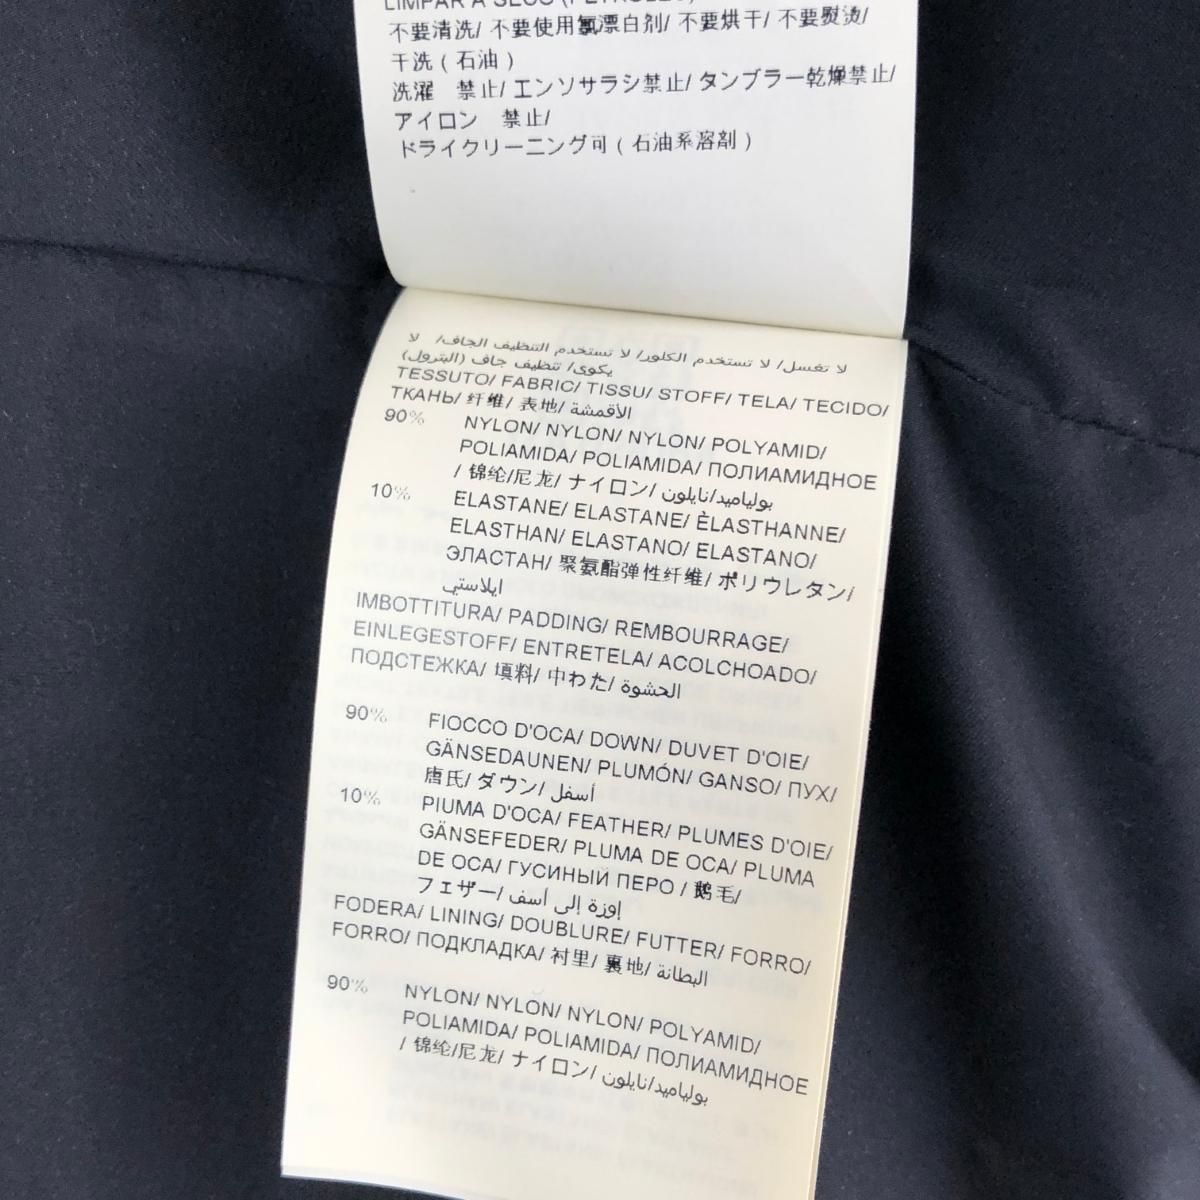 LIMPAR A SECO (PETRÓLEO)
不要清洗/ 不要使用氯漂白剂/ 不要烘干/ 不要熨烫/
干洗 ( 石油 )
洗濯　禁止/ エンソサラシ禁止/ タンブラー乾燥禁止/
アイロン　禁止/
ドライクリーニング可 ( 石油系溶剤 )
لا تغسل/ لا تستخدم الكلور/ لا تستخدم التنظيف الجاف/ لا
يكوى/ تنظيف جاف (البترول)
TESSUTO/ FABRIC/ TISSU/ STOFF/ TELA/ TECIDO/
ТКАНЬ/ 纤维/ 表地/ الأقمشة
90% NYLON/ NYLON/ NYLON/ POLYAMID/
POLIAMIDA/ POLIAMIDA/ ПОЛИАМИДНОЕ
/ 锦纶/尼龙/ ナイロン/ بولياميد/نايلون
10% ELASTANE/ ELASTANE/ ÈLASTHANNE/
ELASTHAN/ ELASTANO/ ELASTANO/
ЭЛАСТАН/ 聚氨酯弹性纤维/ ポリウレタン/
ايلاستي
IMBOTTITURA/ PADDING/ REMBOURRAGE/
EINLEGESTOFF/ ENTRETELA/ ACOLCHOADO/
ПОДСТЕЖКА/ 填料/ 中わた/ الحشوة
90% FIOCCO D'OCA/ DOWN/ DUVET D'OIE/
GÄNSEDAUNEN/ PLUMÓN/ GANSO/ ПУХ/
唐氏/ ダウン/ أسفل
10% PIUMA D'OCA/ FEATHER/ PLUMES D'OIE/
GÄNSEFEDER/ PLUMA DE OCA/ PLUMA
DE OCA/ ГУСИНЫЙ ПЕРО / 鹅毛/
フェザー/ إوزة إلى أسف
FODERA/ LINING/ DOUBLURE/ FUTTER/ FORRO/
FORRO/ ПОДКЛАДКА/ 衬里/ 裏地/ البطانة
90% NYLON/ NYLON/ NYLON/ POLYAMID/
POLIAMIDA/ POLIAMIDA/ ПОЛИАМИДНОЕ
/ 锦纶/尼龙/ ナイロン/ بولياميد/نايلون